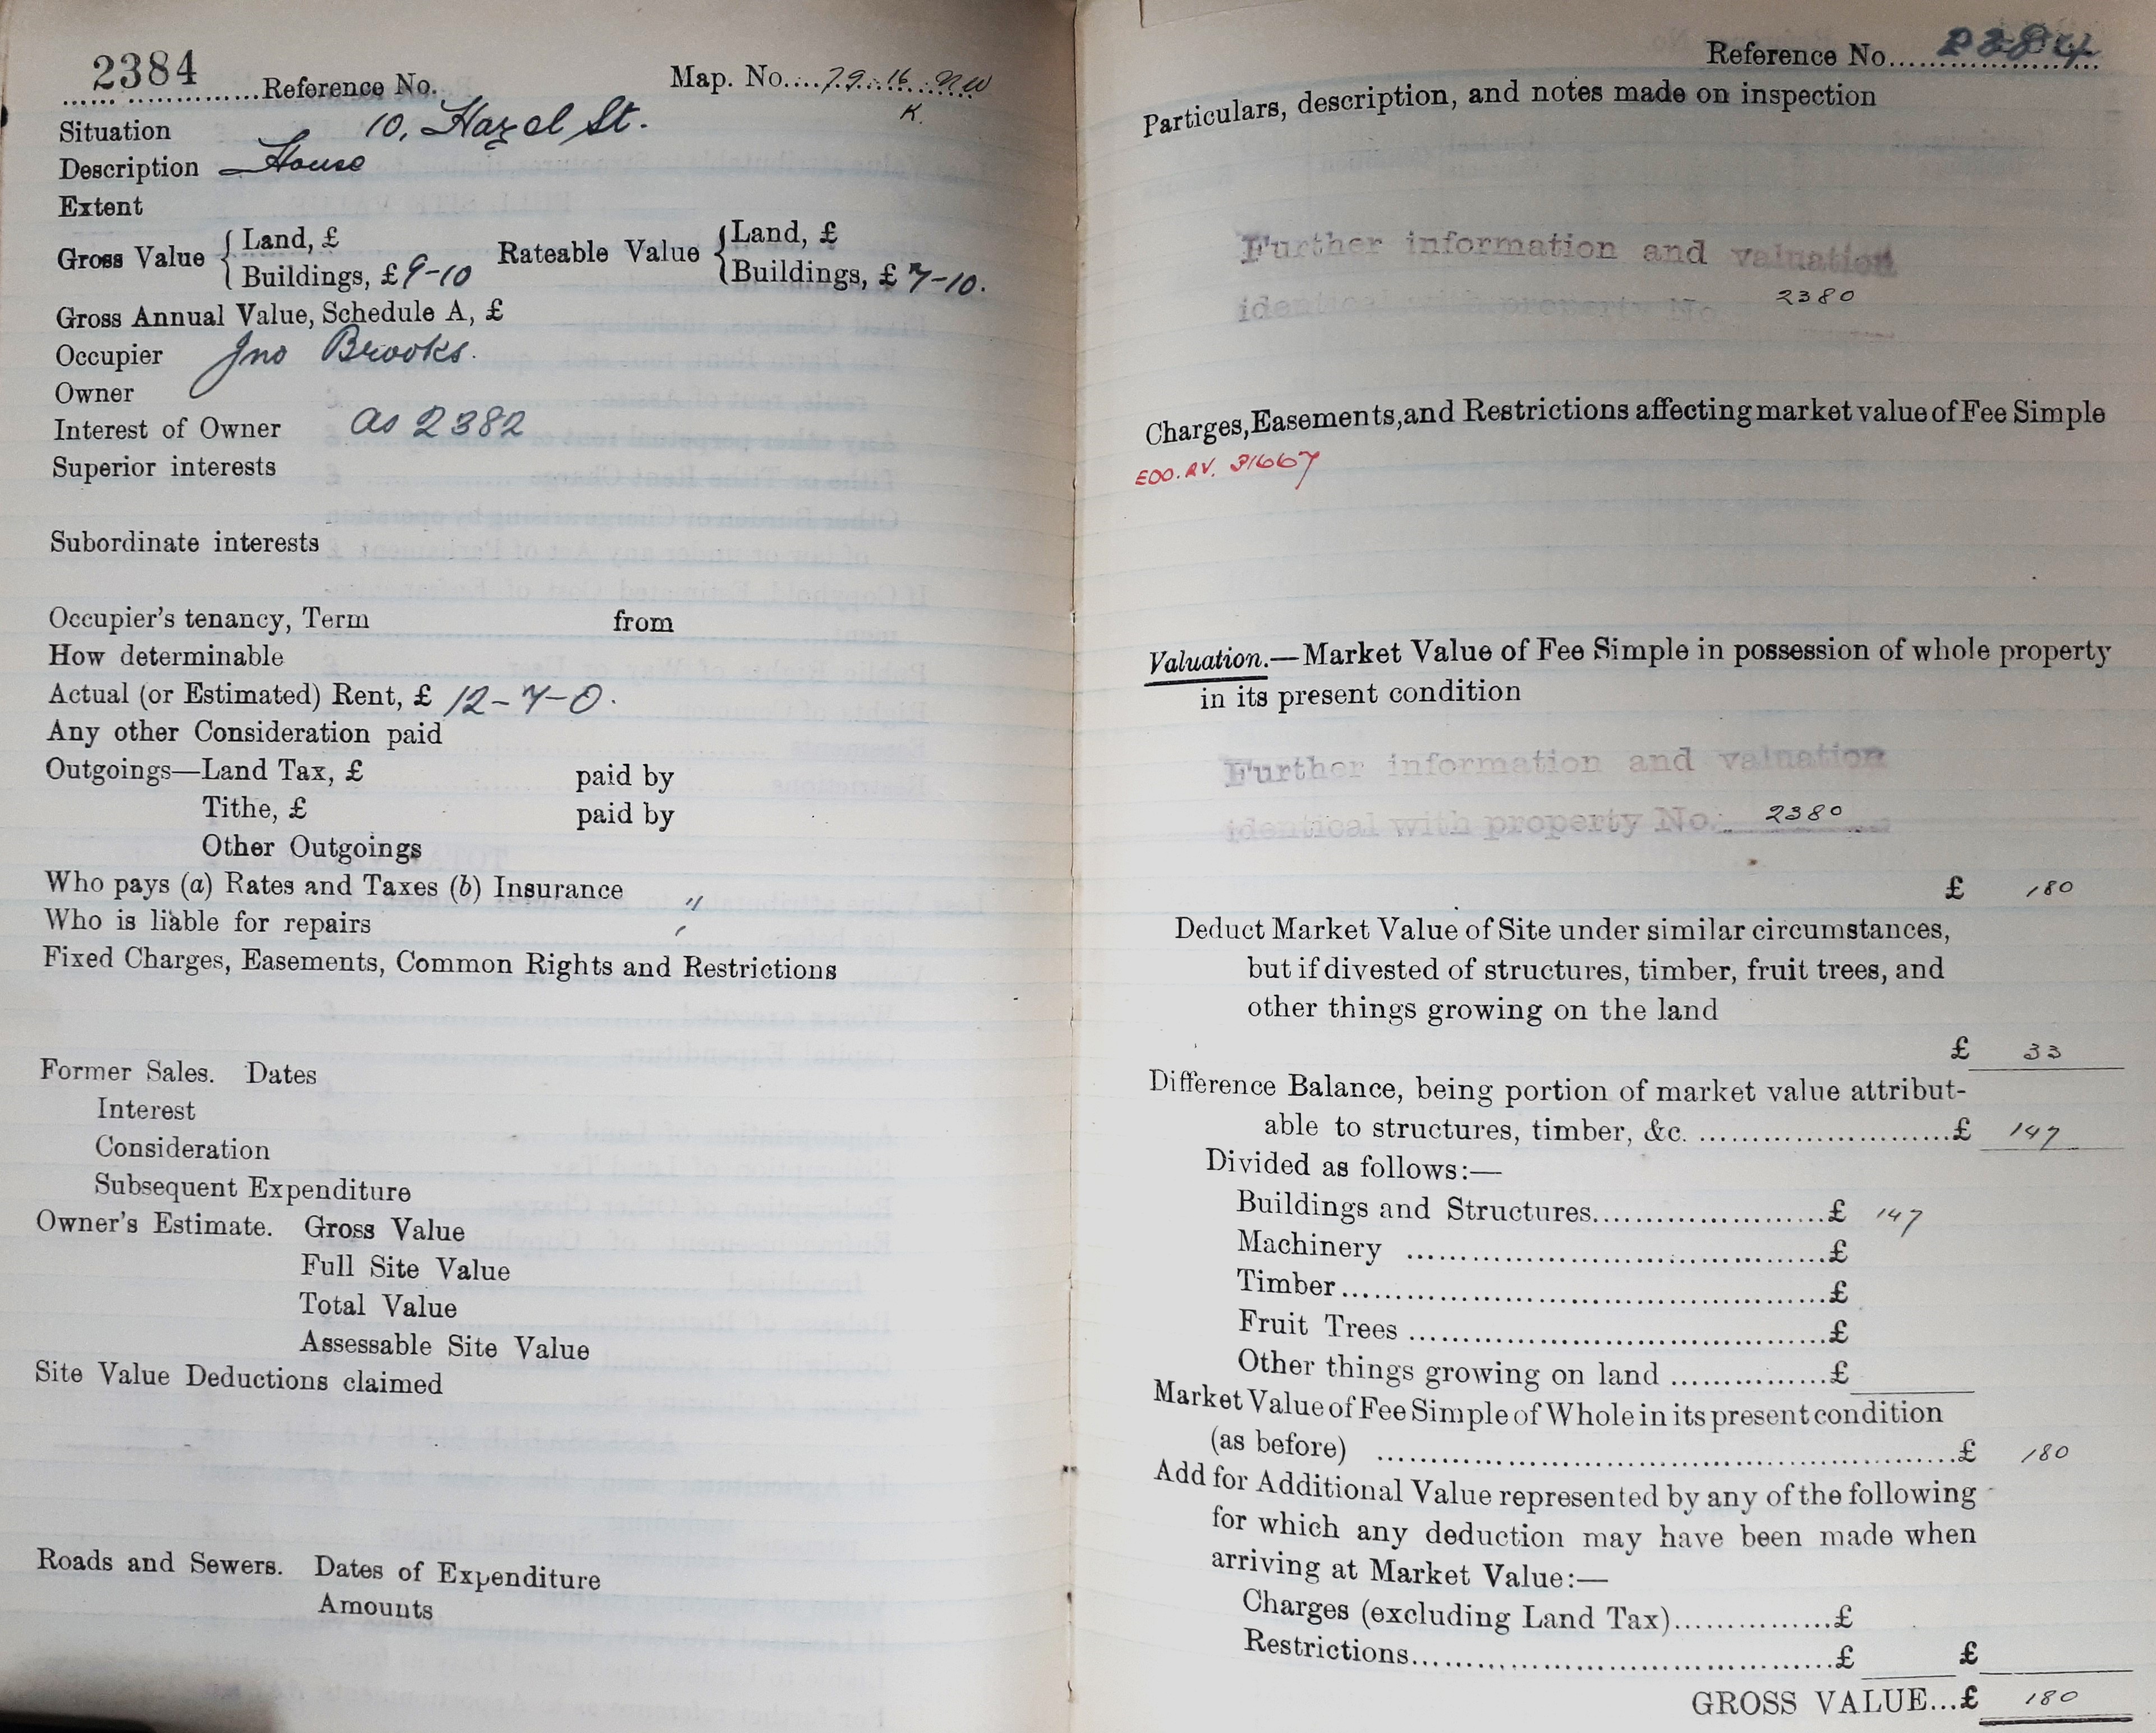 2384 Reference No. Map. No. 79.16 NW
K.
Situation 10, Hazel St.
Description House
Extent
Gross Value { Land, £ Rateable Value { Land, £
Buildings, £ 9-10 Buildings, £ 7-10.
Gross Annual Value, Schedule A, £
Occupier Jno Brooks.
Owner
Interest of Owner as 2382
Superior interests
Subordinate interests
Occupier's tenancy, Term from
How determinable
Actual (or Estimated) Rent, £ 12-7-0.
Any other Consideration paid
Outgoings—Land Tax, £ paid by
Tithe, £ paid by
Other Outgoings
Who pays (a) Rates and Taxes (b) Insurance "
Who is liable for repairs
Fixed Charges, Easements, Common Rights and Restrictions
Former Sales. Dates
Interest
Consideration
Subsequent Expenditure
Owner's Estimate. Gross Value
Full Site Value
Total Value
Assessable Site Value
Site Value Deductions claimed
Roads and Sewers. Dates of Expenditure
Amounts
Reference No. 2384
Particulars, description, and notes made on inspection
Further information and valuation
identical with property No. 2380
Charges, Easements, and Restrictions affecting market value of Fee Simple
EDO. RV. 31667
Valuation.—Market Value of Fee Simple in possession of whole property
in its present condition
Further information and valuation
identical with property No. 2380
£ 180
Deduct Market Value of Site under similar circumstances,
but if divested of structures, timber, fruit trees, and
other things growing on the land
£ 33
Difference Balance, being portion of market value attribut-
able to structures, timber, &c. ........................£ 147
Divided as follows:—
Buildings and Structures......................£ 147
Machinery ......................£
Timber......................£
Fruit Trees ......................£
Other things growing on land ...............£
Market Value of Fee Simple of Whole in its present condition
(as before) ......................£ 180
Add for Additional Value represented by any of the following
for which any deduction may have been made when
arriving at Market Value:—
Charges (excluding Land Tax)...............£
Restrictions......................£ £
GROSS VALUE...£ 180